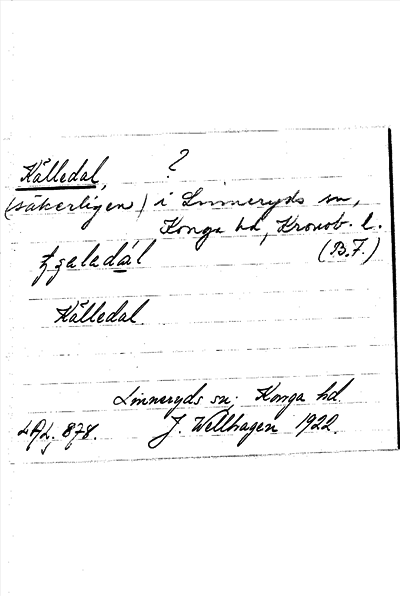 Källedal, ?
(säkerligen) i Linneryds sn,
Konga hd, Kronob. l.
(B.F.)
Källedal.
Linneryds sn; Konga hd.
878. J. Wellhagen 1922.